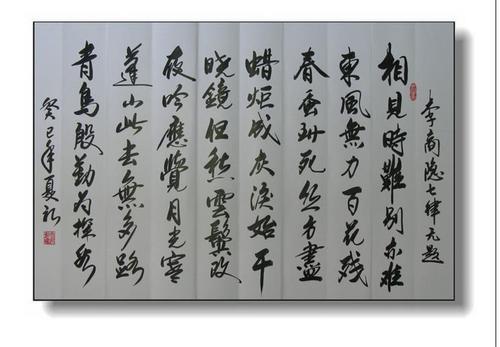 李商隐七律无题
相見時難别亦难
東風無力百花残
春蚕到死丝方盡
蜡炬成灰淚始干
晓鏡但愁雲鬢改
夜吟應覺月光寒
蓬山此去無多路
青鳥殷勤为探看
癸巳年夏